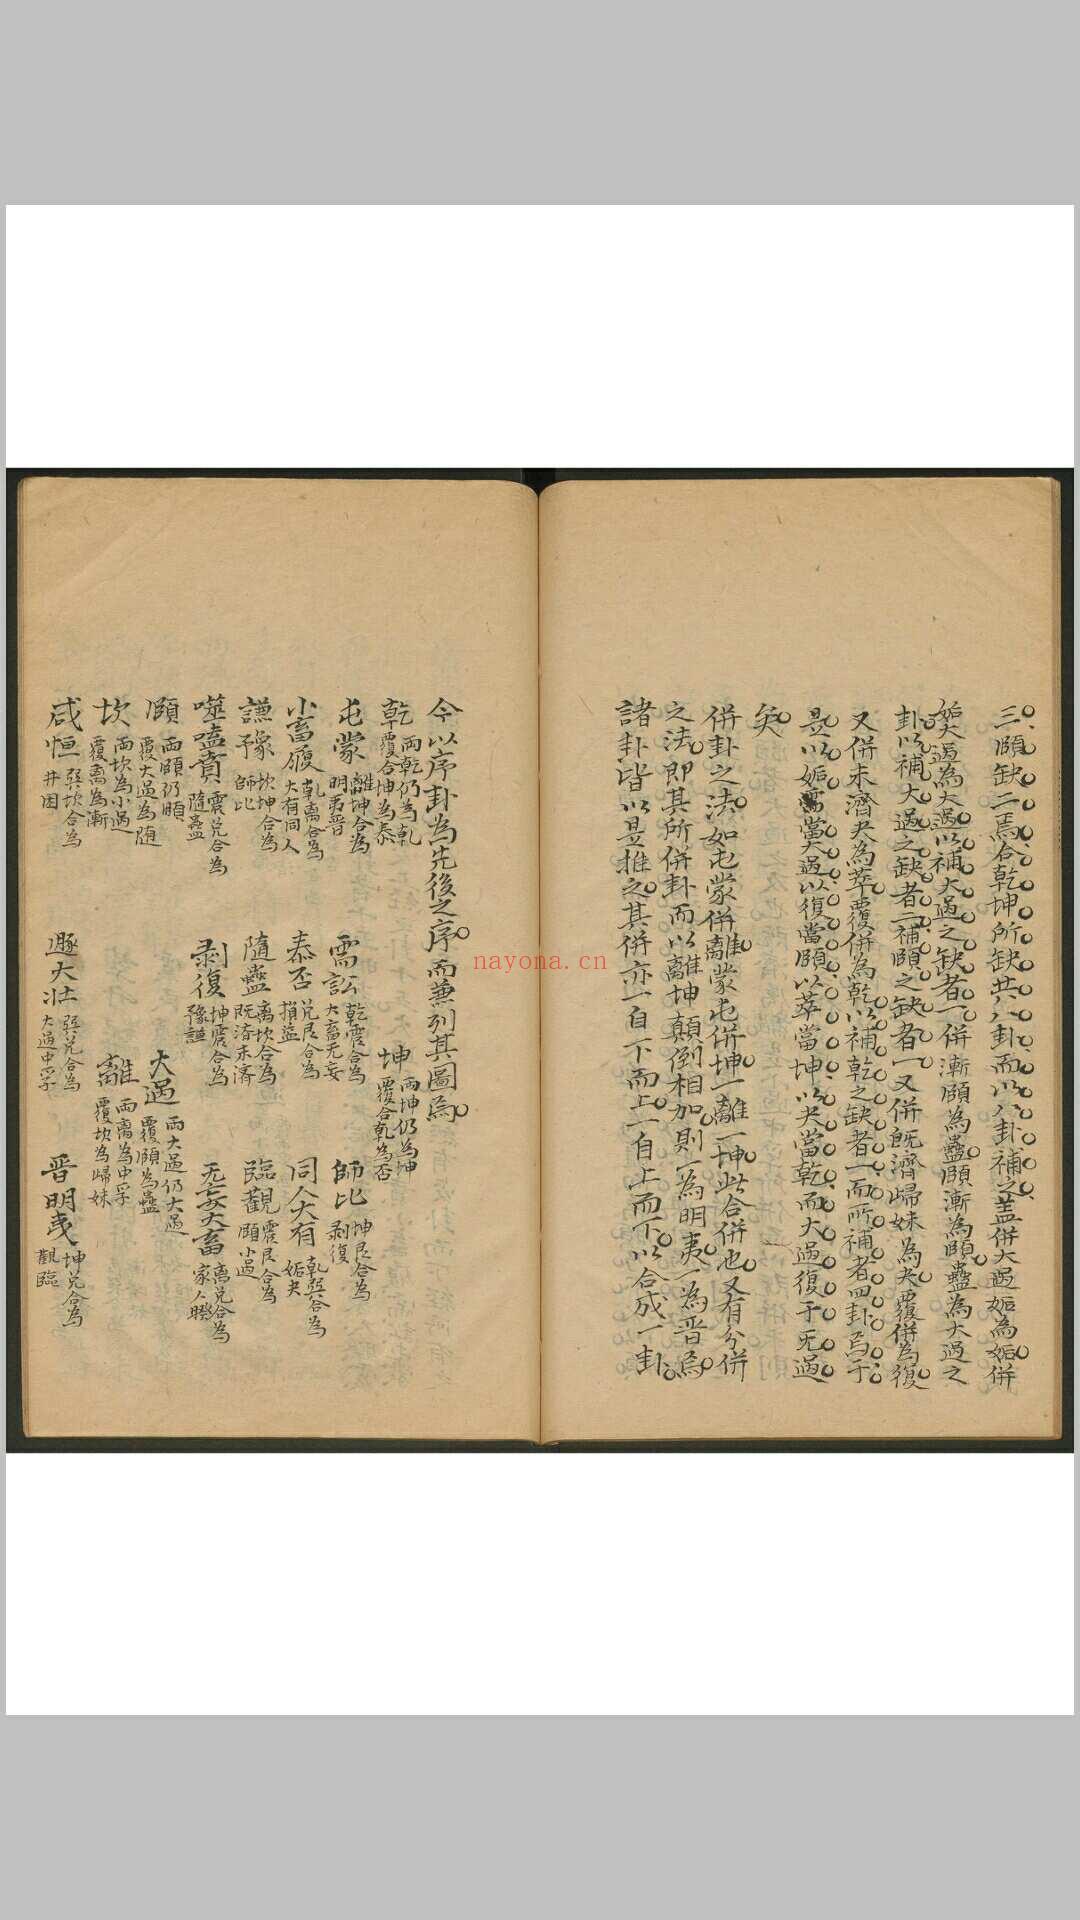 三頤缺二焉合乾坤所缺共八卦而以八卦補之蓋併大過姤為姤併
姤大過為大過以補大過之缺者一併漸頤為蠱頤漸為頤蠱為大過之
卦以補大過之缺者二補頤之缺者一又併既濟歸妹為夬覆併為復
又併未濟夬為萃覆併為乾以補乾之缺者一而所補者四卦焉于
是以姤當大過以復當頤以萃當坤以夬當乾而大過復于无過
矣
併卦之法如屯蒙併離蒙屯併坤一離一坤此合併也又有分併
之法即其所併卦而以離坤顛倒相加則一為明夷一為晋焉
諸卦皆以是推之其併亦一自下而上一自上而下以合成一卦
今以序卦為先後之序而兼列其圖焉
乾 兩乾仍為乾 覆合坤為泰
坤 兩坤仍為坤 覆合乾為否
屯蒙 離坤合為 明夷晋
需訟 乾震合為 大畜无妄
師比 坤艮合為 剥復
小畜履 乾离合為 大有同人
泰否 兌艮合為 損益
同人大有 乾巽合為 姤夬
謙豫 坎坤合為 師比
隨蠱 离坎合為 既济未济
臨觀 震艮合為 頤小過
噬嗑賁 震兌合為 隨蠱
剥復 坤震合為 豫謙
无妄大畜 离兌合為 家人睽
頤 兩頤仍頤 覆大過為随
大過 兩大過仍大過 覆頤為蠱
坎 兩坎為小過 覆离為漸
離 兩离為中孚 覆坎為歸妹
咸恒 巽坎合為 井困
遯大壮 巽兌合為 大過中孚
晋明夷 坤兌合為 觀臨
nayona.cn